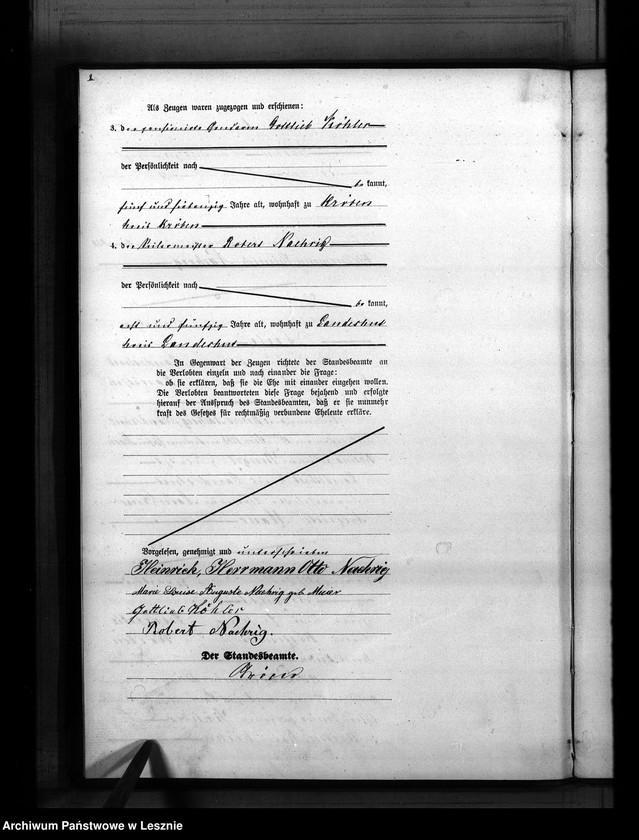 1
Als Zeugen waren zugezogen und erschienen:
3. der pensionirte Gendarm Gottlieb Köhler
der Persönlichkeit nach
be kannt,
fünf und siebenzig Jahre alt, wohnhaft zu Kröben
Kreis Kröben
4. der Robert Naehrig
der Persönlichkeit nach
be kannt,
acht und fünfzig Jahre alt, wohnhaft zu Landeshut
Kreis Landeshut
In Gegenwart der Zeugen richtete der Standesbeamte an
die Verlobten einzeln und nach einander die Frage:
ob sie erklären, daß sie die Ehe mit einander eingehen wollen.
Die Verlobten beantworteten diese Frage bejahend und erfolgte
hierauf der Ausspruch des Standesbeamten, daß er sie nunmehr
kraft des Gesetzes für rechtmäßig verbundene Eheleute erkläre.
Vorgelesen, genehmigt und unterschrieben
Heinrich, Herrmann Otto Naehrig
Marie Louise Auguste Naehrig geb
Gottlieb Köhler
Robert Naehrig.
Der Standesbeamte.
Archiwum Państwowe w Lesznie